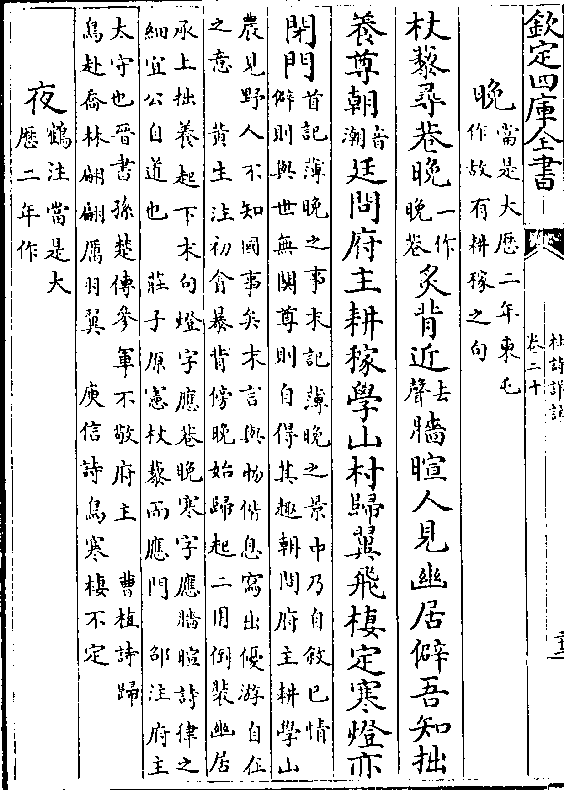 欽定四庫全書
杜詩詳註
卷二十
晚當是大厯二年東屯
作故有耕稼之句
杖藜尋巷晚一作
晚巷炙背近去
聲牆暄人見幽居僻吾知拙
養尊朝音
潮廷問府主耕稼學山村歸翼飛棲定寒燈亦
閉門首記薄晚之事末記薄晚之景中乃自敘己情
僻則與世無關尊則自得其趣朝問府主耕學山
農見野人不知國事矣末言與物偕息寫出優游自任
之意 黄生注初會暴背傍晚始歸起二用倒装幽居
承上拙養起下末句燈字應巷晚寒字應牆暄詩律之
細宜公自道也 莊子原憲杖藜而應門 邵注府主
太守也晉書孫楚傳參軍不敬府主 曹植詩歸
鳥赴喬林翩翩厲羽翼 庾信詩鳥寒棲不定
夜鶴注當是大
厯二年作